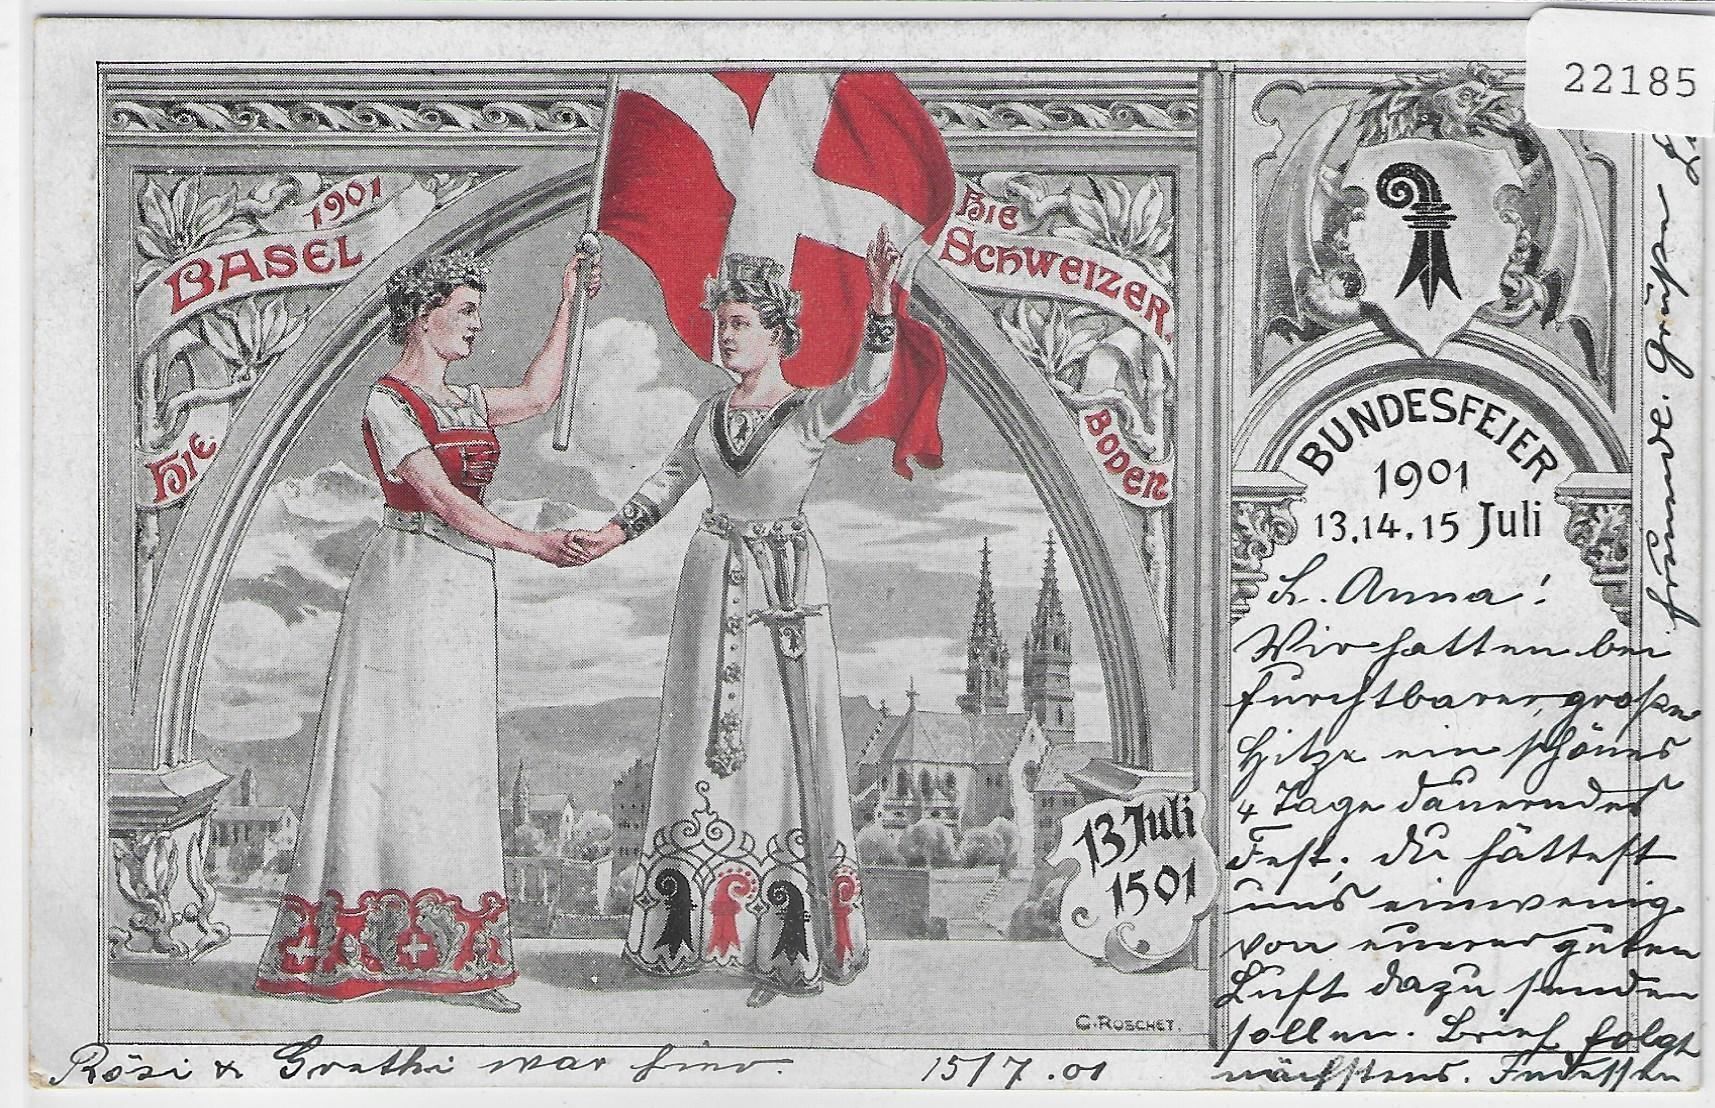 22185
HIE
BASEL
1901
HIE
SCHWEIZER
BODEN
BUNDESFEIER
1901
13.14.15 Juli
13 Juli
1501
C. ROSCHET.
L. Anna!
Wir hatten bei
furchtbarer, großer
Hitze ein schönes
4 Tage dauerndes
Fest; du hättest
uns einwenig
von eurer guten
Luft dazu senden
sollen. Brief folgt
nächstens. Indessen
freundl. Grüße
Rösi & Grethi war hier. 15/7.01